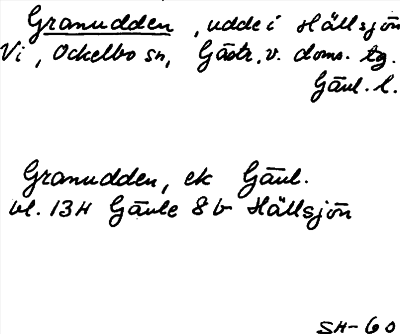 Granudden, udde i Hällsjön
Vi, Ockelbo sn, Gästr. v. doms. tg.
Gävl. l.
Granudden, ek Gävl.
bl. 13H Gävle 8b Hällsjön
SH-60